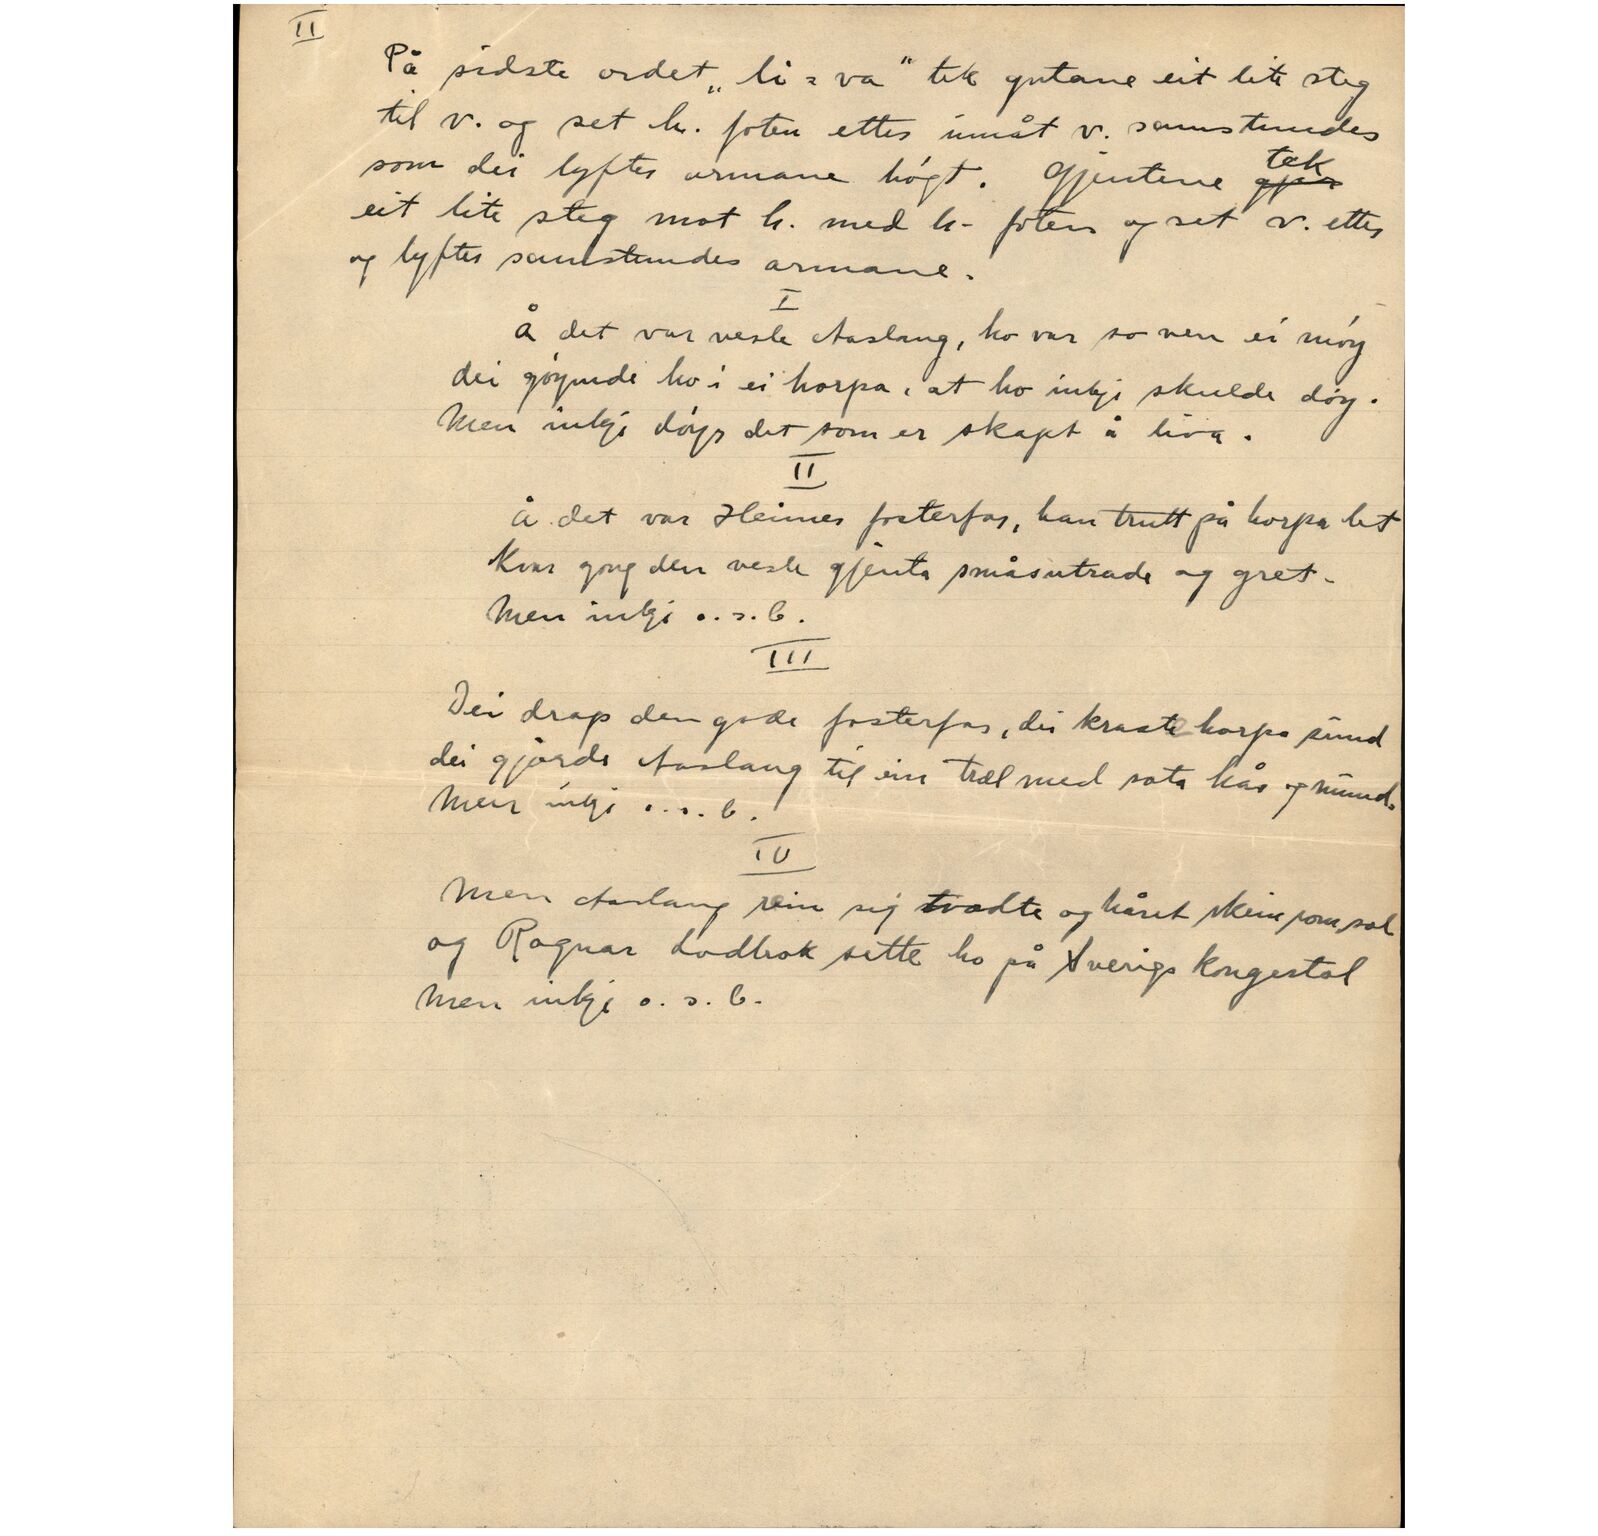 II
På sidste ordet „li = va" tek gutane eit lite steg
til v. og set h. foten etter inmåt v. samstundes
som dei lyfter armane høgt. Gjentene tek
eit lite steg mot h. med h. foten og set v. etter
og lyfter samstundes armane.
I
Å det var vesle Aaslaug, ho var so ven ei møy
dei gøymde ho i ei horpa, at ho inkji skulde døy.
Men inkji døyr det som er skapt å liva.
II
Å det var Heimer fosterfar, han trutt på horpa let
Kvar gong den vesle gjenta småsutrade og gret.
Men inkji o. s. b.
III
Dei drap den gode fosterfar, dei kraste horpa sund
dei gjorde Aaslaug til ein træl med sota hår og mund.
Men inkji o. s. b.
IV
Men Aaslaug rein sig tvædte og håret skein som sol
og Ragnar Lodbrok sette ho på Sverigs kongestol
Men inkji o. s. b.